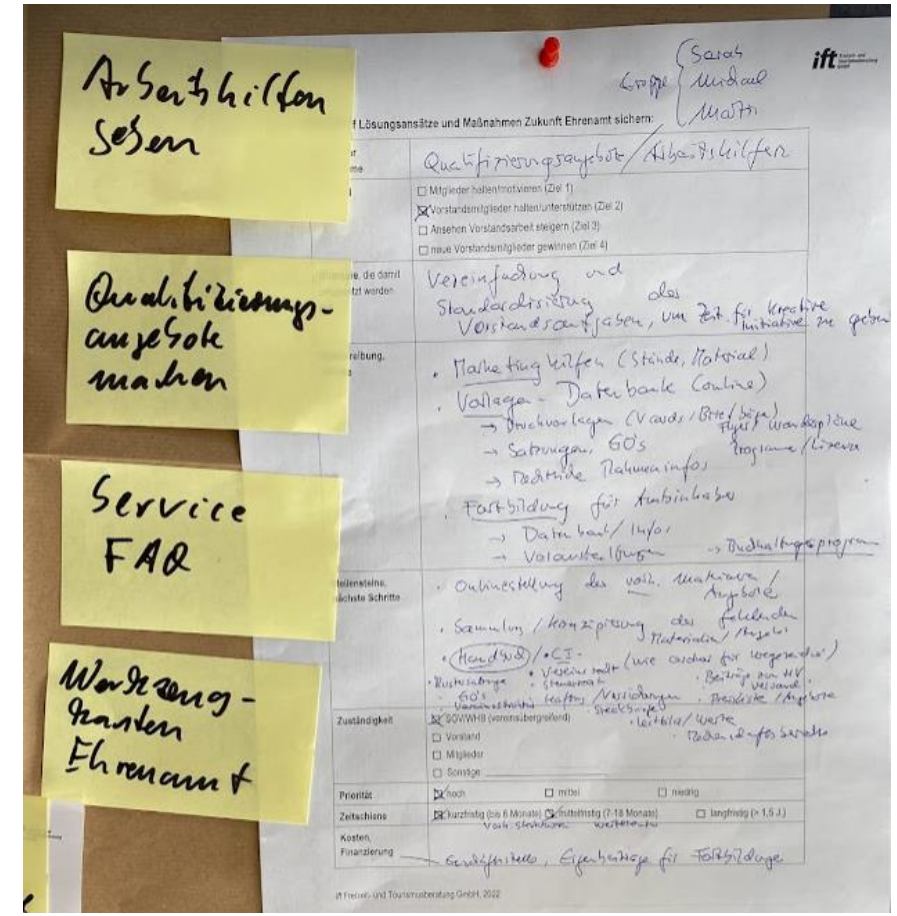 Arbeitshilfen
geben
Qualifizierungs-
angebote
machen
Service
FAQ
Werkzeug-
kasten
Ehrenamt
Gruppe
Sarah
Michael
Martin
ift Freizeit- und Tourismusberatung GmbH
f Lösungsansätze und Maßnahmen Zukunft Ehrenamt sichern:
Qualifizierungsangebote / Arbeitshilfen
☐ Mitglieder halten/motivieren (Ziel 1)
☒ Vorstandsmitglieder halten/unterstützen (Ziel 2)
☐ Ansehen Vorstandsarbeit steigern (Ziel 3)
☐ neue Vorstandsmitglieder gewinnen (Ziel 4)
die damit
werden
Vereinfachung und
Standardisierung der
Vorstandsaufgaben, um Zeit für kreative
Initiative zu geben
reibung,
• Marketinghilfen (Stände, Material)
• Vorlagen - Datenbank (online)
→ Druckvorlagen (V cards / Briefbögen)
Flyer / Wanderpläne
→ Satzungen, GO's
Programme / Lizenzen
→ Rechtliche Rahmeninfos
• Fortbildung für Amtsinhaber
→ Datenbank / Infos
→ Veranstaltungen → Buchhaltungsprogramm
Meilensteine,
nächste Schritte
• Onlinestellung der vorh. Materialien /
Angebote
• Sammlung / Konzipierung der fehlenden
Materialien / Angebote
• Handbuch / • CI -
• Vereinsrecht (wie für Wegezeichen)
• Mustersatzung • Steuerrecht
• Beiträge zur HV
Versand
• GO's
• Haftung / Versicherungen
• Preisliste / Angebote
• Steckbriefe
• Leitbild / Werte
Zuständigkeit
☒ SGV/WHB (vereinsübergreifend)
☐ Vorstand
☐ Mitglieder
☐ Sonstige
Priorität
☒ hoch ☐ mittel ☐ niedrig
Zeitschiene
☒ kurzfristig (bis 6 Monate) ☒ mittelfristig (7-18 Monate) ☐ langfristig (> 1,5 J.)
Kosten,
Finanzierung
Geschäftsstelle, Eigenbeiträge für Fortbildungen
ift Freizeit- und Tourismusberatung GmbH, 2022